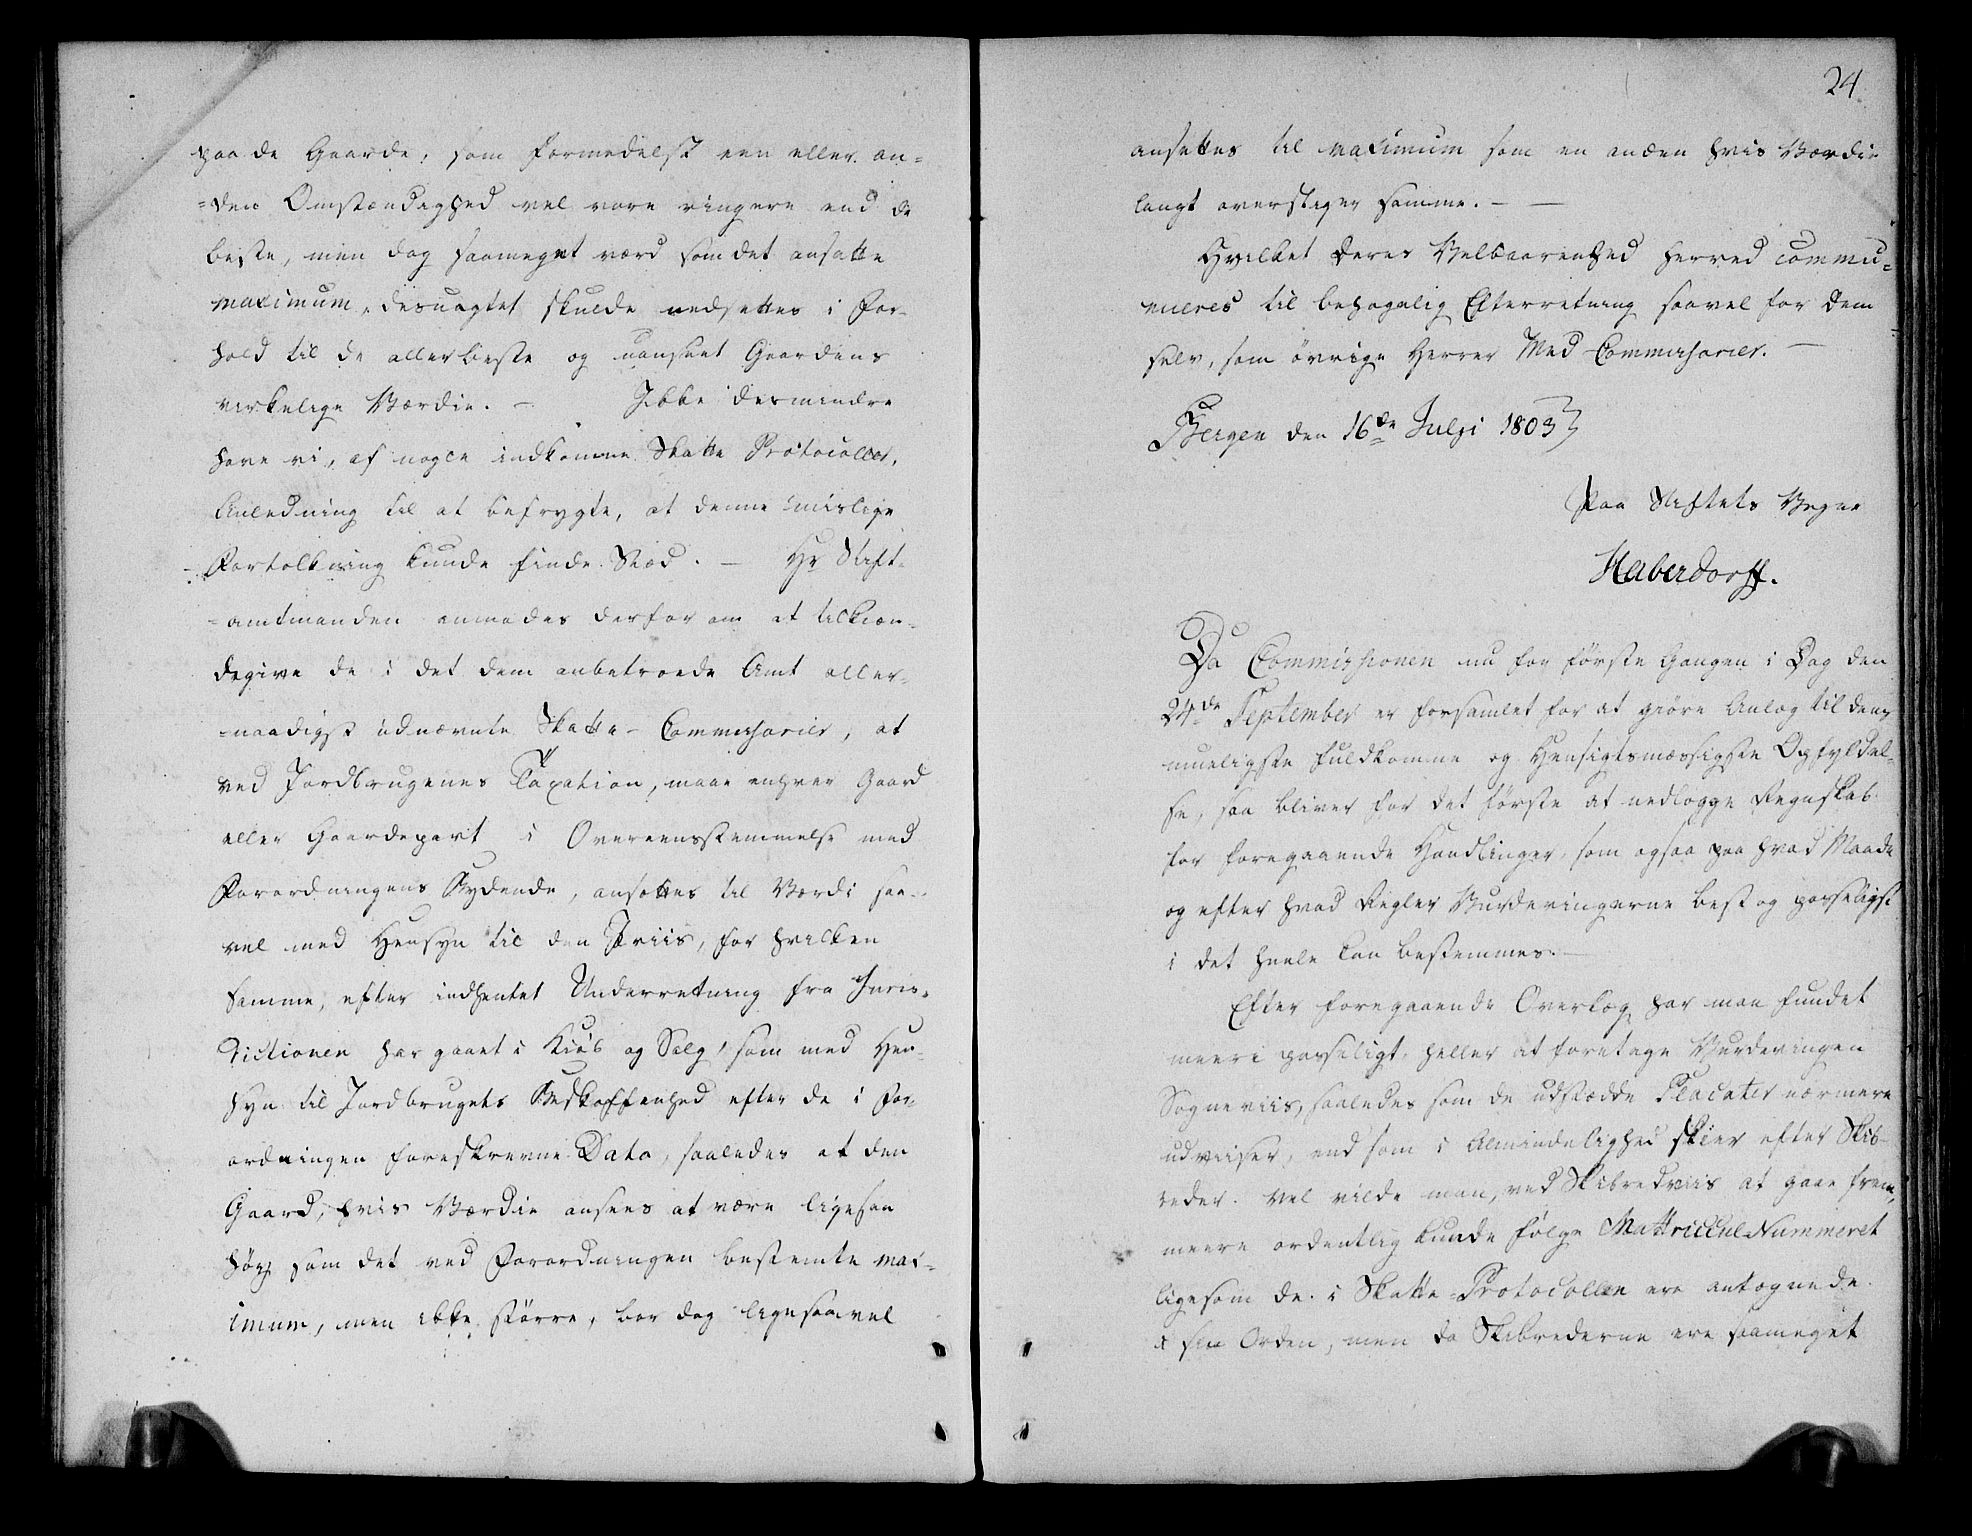 paa de Gaarde, som formedelst een eller an=
=den Omstændighed vel vare ringere end de
beste, men dog saameget værd som det ansatte
maximum, desuagtet skulde nedsettes i For-
hold til de allerbeste og uanseet Gaardens
virkelige Værdie. — Ikke desmindre
have vi, af nogle indkomne Skatte Protocoller,
Anledning til at befrygte, at denne mislige
Fortolkning kunde finde Stæd. — Hr Stift-
=amtmanden anmodes derfor om at tilkien-
degive de i det dem anbetroede Amt aller-
=naadigst udnævnte Skatte-Commissairer, at
ved Jordbrugenes Taxation, maae enhver Gaard
eller Gaardepart i Overeensstemmelse med
Forordningens Bydende, ansættes til Værdi saa-
vel med Hensyn til den Priis, for hvilken
samme, efter indhentet Underretning fra Juris-
dictionen har gaaet i Kiøb og Salg, som med Hen-
syn til Jordbrugets Beskaffenhed efter de i For-
ordningen foreskrevne Data, saaledes at den
Gaard, hvis Værdie ansees at være ligesaa
høy som det ved Forordningen bestemte max-
imum, men ikke større, bør dog ligesaavel
24
ansettes til maximum som en anden hvis Værdie
langt overstiger samme. — —
Hvilket Deres Velbaarenhed herved commu=
niceres til behagelig Efterretning saavel for Dem
selv, som øvrige Herrer Med-Commissairer. —
Bergen den 16de Julji 1803
Paa Stiftets Vegne
Haberdorff.
Da Commissionen nu for første Gangen i Dag den
24de September er forsamlet for at giøre Anlæg til dens
mueligste fuldkomne og Hensigtsmæssigste Opfyldel-
se, saa bliver for det første at nedlægge Regnskab
for foregaaende Handlinger, som ogsaa paa hvad Maade
og efter hvad Regler Vurderingerne best og passeligst
i det heele kan bestemmes. —
Efter foregaaende Overlæg har man fundet
meere passeligt, heller at foretage Vurderingen
Sogneviis, saaledes som de udstædde Placater nærmere
udviiser, end som i Almindelighed skeer efter Skib-
reder. Vel vilde man, ved Skibredviis at gaae frem,
meere ordentlig kunde følge Mattricul Nummeret
ligesom de i Skatte-Protocollen ere antegnede
i sin Orden, men da Skibrederne ere saameget